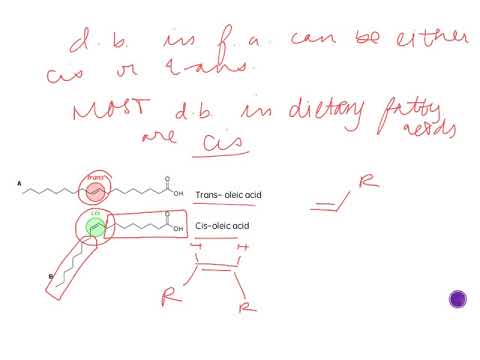 d.b. in f.a. can be either
cis or trans.
MOST d.b. in dietary fatty
acids
are cis
trans
A
O
OH
Trans- oleic acid
R
cis
O
OH
Cis-oleic acid
H H
B
R
R